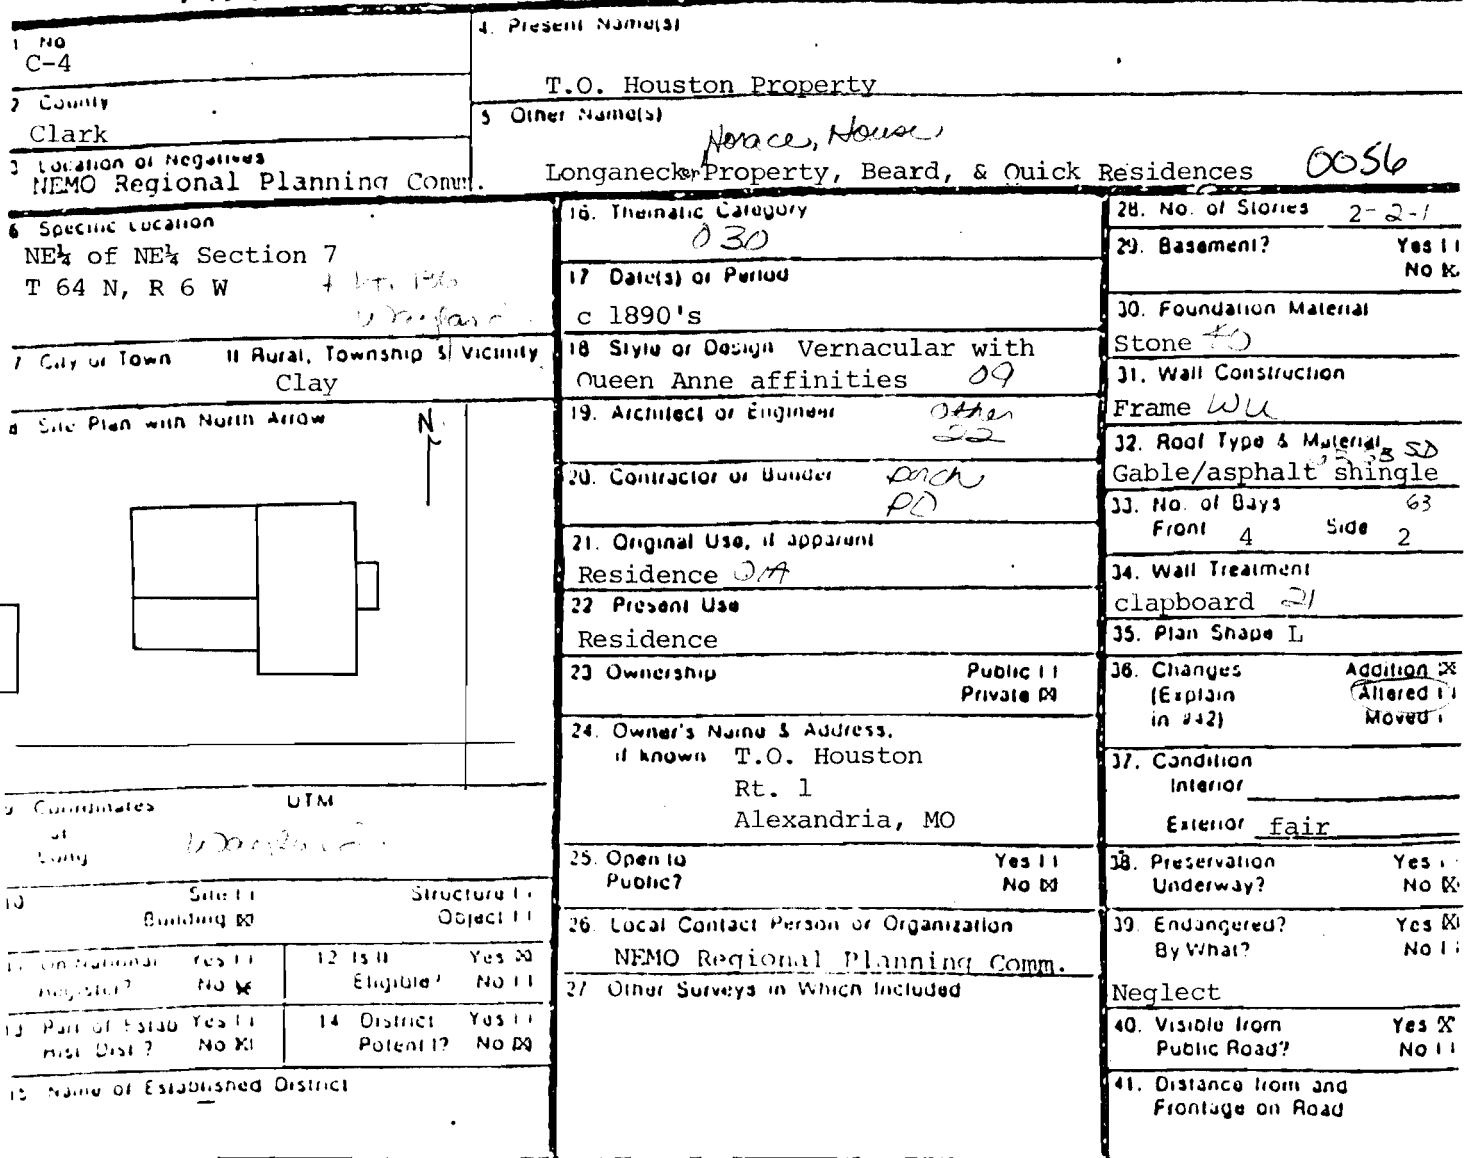 1 No
C-4
4. Present Name(s)
T.O. Houston Property
2 County
Clark
5 Other Name(s)
Horace, House
Longanecker Property, Beard, & Quick Residences 0056
3 Location of Negatives
NEMO Regional Planning Comm.
6 Specific Location
NE¼ of NE¼ Section 7
T 64 N, R 6 W
7 City or Town If Rural, Township & Vicinity
Clay
8 Site Plan with North Arrow
N
9 Coordinates UTM
Lat
Long
10 Site [ ] Structure [ ]
Building [X] Object [ ]
11 On National Yes [ ]
Register? No [X]
12 Is It Yes [X]
Eligible? No [ ]
13 Part of Estab Yes [ ]
Hist. Dist.? No [X]
14 District Yes [ ]
Potent'l? No [X]
15 Name of Established District
16. Thematic Category
030
17 Date(s) or Period
c 1890's
18 Style or Design Vernacular with
Queen Anne affinities 09
19. Architect or Engineer Other
22
20. Contractor or Builder porch
PO
21. Original Use, if apparent
Residence 01A
22 Present Use
Residence
23 Ownership Public [ ]
Private [X]
24. Owner's Name & Address,
if known T.O. Houston
Rt. 1
Alexandria, MO
25. Open to Yes [ ]
Public? No [X]
26. Local Contact Person or Organization
NEMO Regional Planning Comm.
27 Other Surveys in Which Included
28. No. of Stories 2-2-1
29. Basement? Yes [ ]
No [X]
30. Foundation Material
Stone 40
31. Wall Construction
Frame WU
32. Roof Type & Material SD
Gable/asphalt shingle
33. No. of Bays 63
Front 4 Side 2
34. Wall Treatment
clapboard 21
35. Plan Shape L
36. Changes Addition [X]
(Explain Altered [ ]
in #42) Moved [ ]
37. Condition
Interior
Exterior fair
38. Preservation Yes [ ]
Underway? No [X]
39. Endangered? Yes [X]
By What? No [ ]
Neglect
40. Visible from Yes [X]
Public Road? No [ ]
41. Distance from and
Frontage on Road